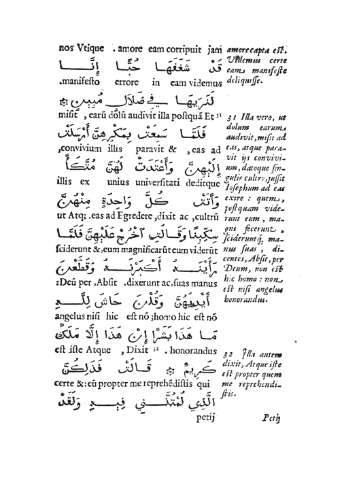 nos Vtique . amore eam corripuit jam
قَدْ شَغَفَهَا حُبًّا إِنَّا
.manifesto errore in eam videmus
لَنَرَيهَا فِي ضَلَالٍ مُبِينٍ
misit , earū dolū audivit illa postquā Et
فَلَمَّا سَمِعَتْ بِمَكْرِهِنَّ أَرْسَلَتْ
,convivium illis paravit & , eas ad
إِلَيْهِنَّ وَأَعْتَدَتْ لَهُنَّ مُتَّكَأً
illis ex unius universitati deditque
وَأَتَتْ كُلَّ وَاحِدَةٍ مِنْهُنَّ
ut Atq; .eas ad Egredere ,dixit ac ,cultrū
سِكِّينًا وَقَالَتِ اخْرُجْ عَلَيْهِنَّ فَلَمَّا
sciderunt &,eum magnificarūt eum viderūt
رَأَيْنَهُ أَكْبَرْنَهُ وَقَطَّعْنَ
:Deū per ,Absit .dixerunt ac,suas manus
أَيْدِيَهُنَّ وَقُلْنَ حَاشَ لِلَّهِ
angelus nisi hic est nō ;homo hic est nō
مَا هَذَا بَشَرًا إِنْ هَذَا إِلَّا مَلَكٌ
est iste Atque , Dixit . honorandus
كَرِيمٌ قَالَتْ فَذَلِكُنَّ
certe &:eū propter me reprehēdistis qui
الَّذِي لُمْتُنَّنِي فِيهِ وَلَقَدْ
petij
amore capta est.
Videmus certe
eam manifeste
deliquisse.
31 Illa vero, ut
dolum earum
audivit, misit ad
eas, atque para-
vit ij convivi-
um, datoque sin-
gulis cultro, jussit
Josephum ad eas
exire : quem,
postquam vide-
runt eam, ma-
gni fecerunt,
sciderunt que ma-
nus suas, di-
centes, Absit, per
Deum, non est
hic homo : non
est nisi angelus
honorandus.
32 Illa autem
dixit, Atque iste
est propter quem
me reprehendi-
stis.
Petij